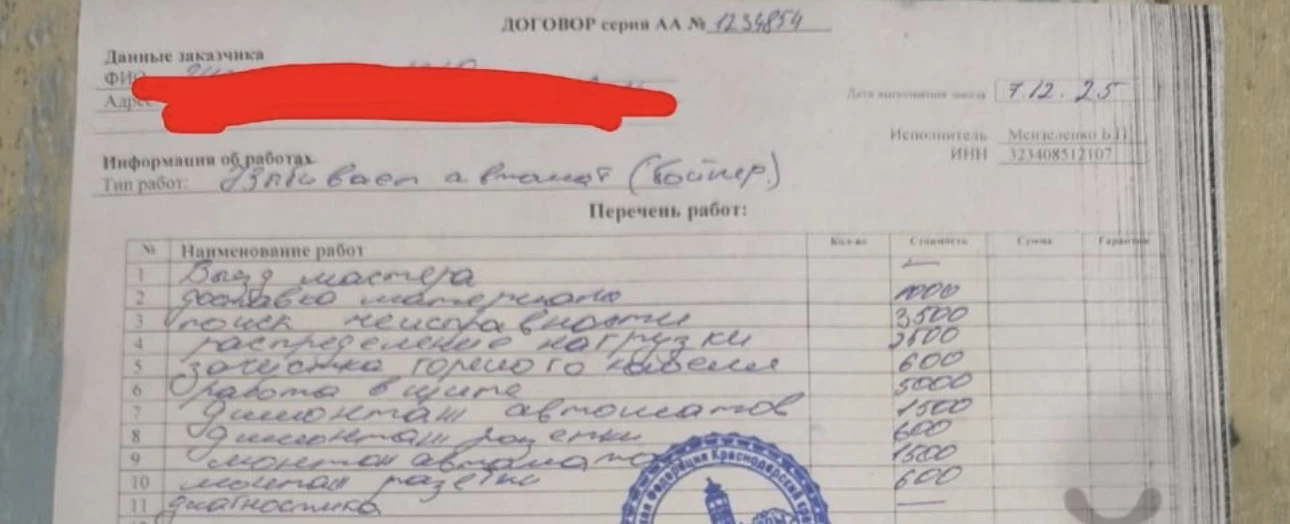 ДОГОВОР серия АА № 1234854
Данные заказчика
ФИО
Адрес
Дата выполнения заказа 7.12.25
Исполнитель Мензеленко Б.П.
ИНН 323408512107
Информация об работах
Тип работ: Узбивает автомат (Бойлер.)
Перечень работ:
№ Наименование работ Кол-во Стоимость Сумма Гарантия
1 Выезд мастера —
2 доставка материала 1000
3 поиск неисправности 3500
4 распределение нагрузки 3500
5 зачистка горелого кабеля 600
6 работа в щите 5000
7 димонтаж автоматов 1500
8 димонтаж розетки 600
9 монтаж автомато 1500
10 монтаж разетки 600
11 диагностика —
Федерация Краснодарский